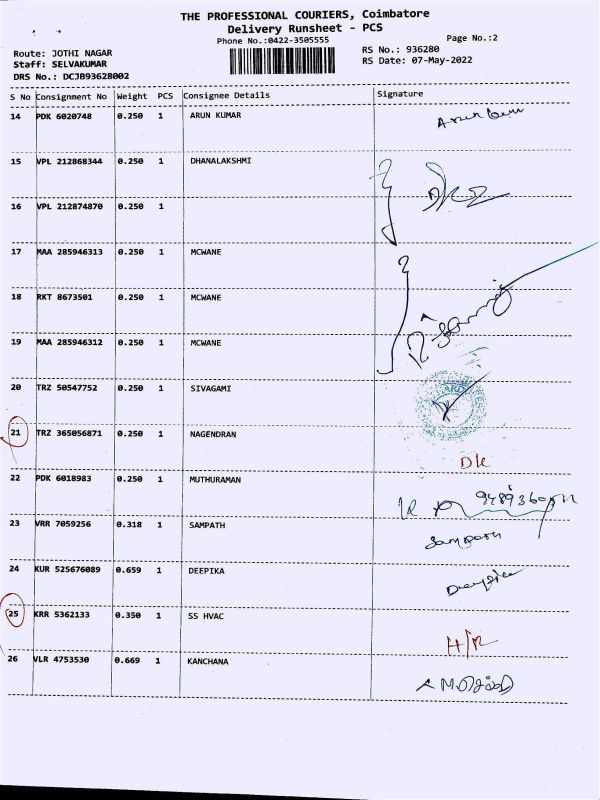 THE PROFESSIONAL COURIERS, Coimbatore
Delivery Runsheet - PCS
Phone No.:0422-3505555
Page No.:2
Route: JOTHI NAGAR
Staff: SELVAKUMAR
DRS No.: DCJB93628002
RS No.: 936280
RS Date: 07-May-2022
S No Consignment No Weight PCS Consignee Details Signature
14 PDK 6020748 0.250 1 ARUN KUMAR
15 VPL 212868344 0.250 1 DHANALAKSHMI
16 VPL 212874870 0.250 1
17 MAA 285946313 0.250 1 MCWANE
18 RKT 8673501 0.250 1 MCWANE
19 MAA 285946312 0.250 1 MCWANE
20 TRZ 50547752 0.250 1 SIVAGAMI
21 TRZ 365056871 0.250 1 NAGENDRAN DK
22 PDK 6018983 0.250 1 MUTHURAMAN
23 VRR 7059256 0.318 1 SAMPATH Sampath
24 KUR 525676089 0.659 1 DEEPIKA Deepika
25 KRR 5362133 0.350 1 SS HVAC H/R
26 VLR 4753530 0.669 1 KANCHANA